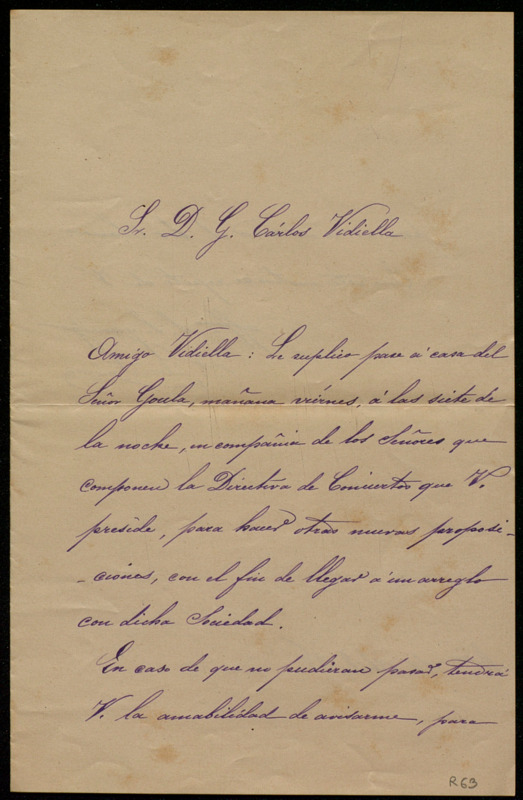 Sr. D. G. Cárlos Vidiella
Amigo Vidiella: Le suplico pase á casa del
Señor Goula, mañana viérnes, á las siete de
la noche, en compañia de los Señores que
componen la Directiva de Conciertos que V.
preside, para hacer otras nuevas proposi-
-ciónes, con el fin de llegar á un arreglo
con dicha Sociedad.
En caso de que no pudieran pasar, tendrá
V. la amabilidad de avisarme, para
R63